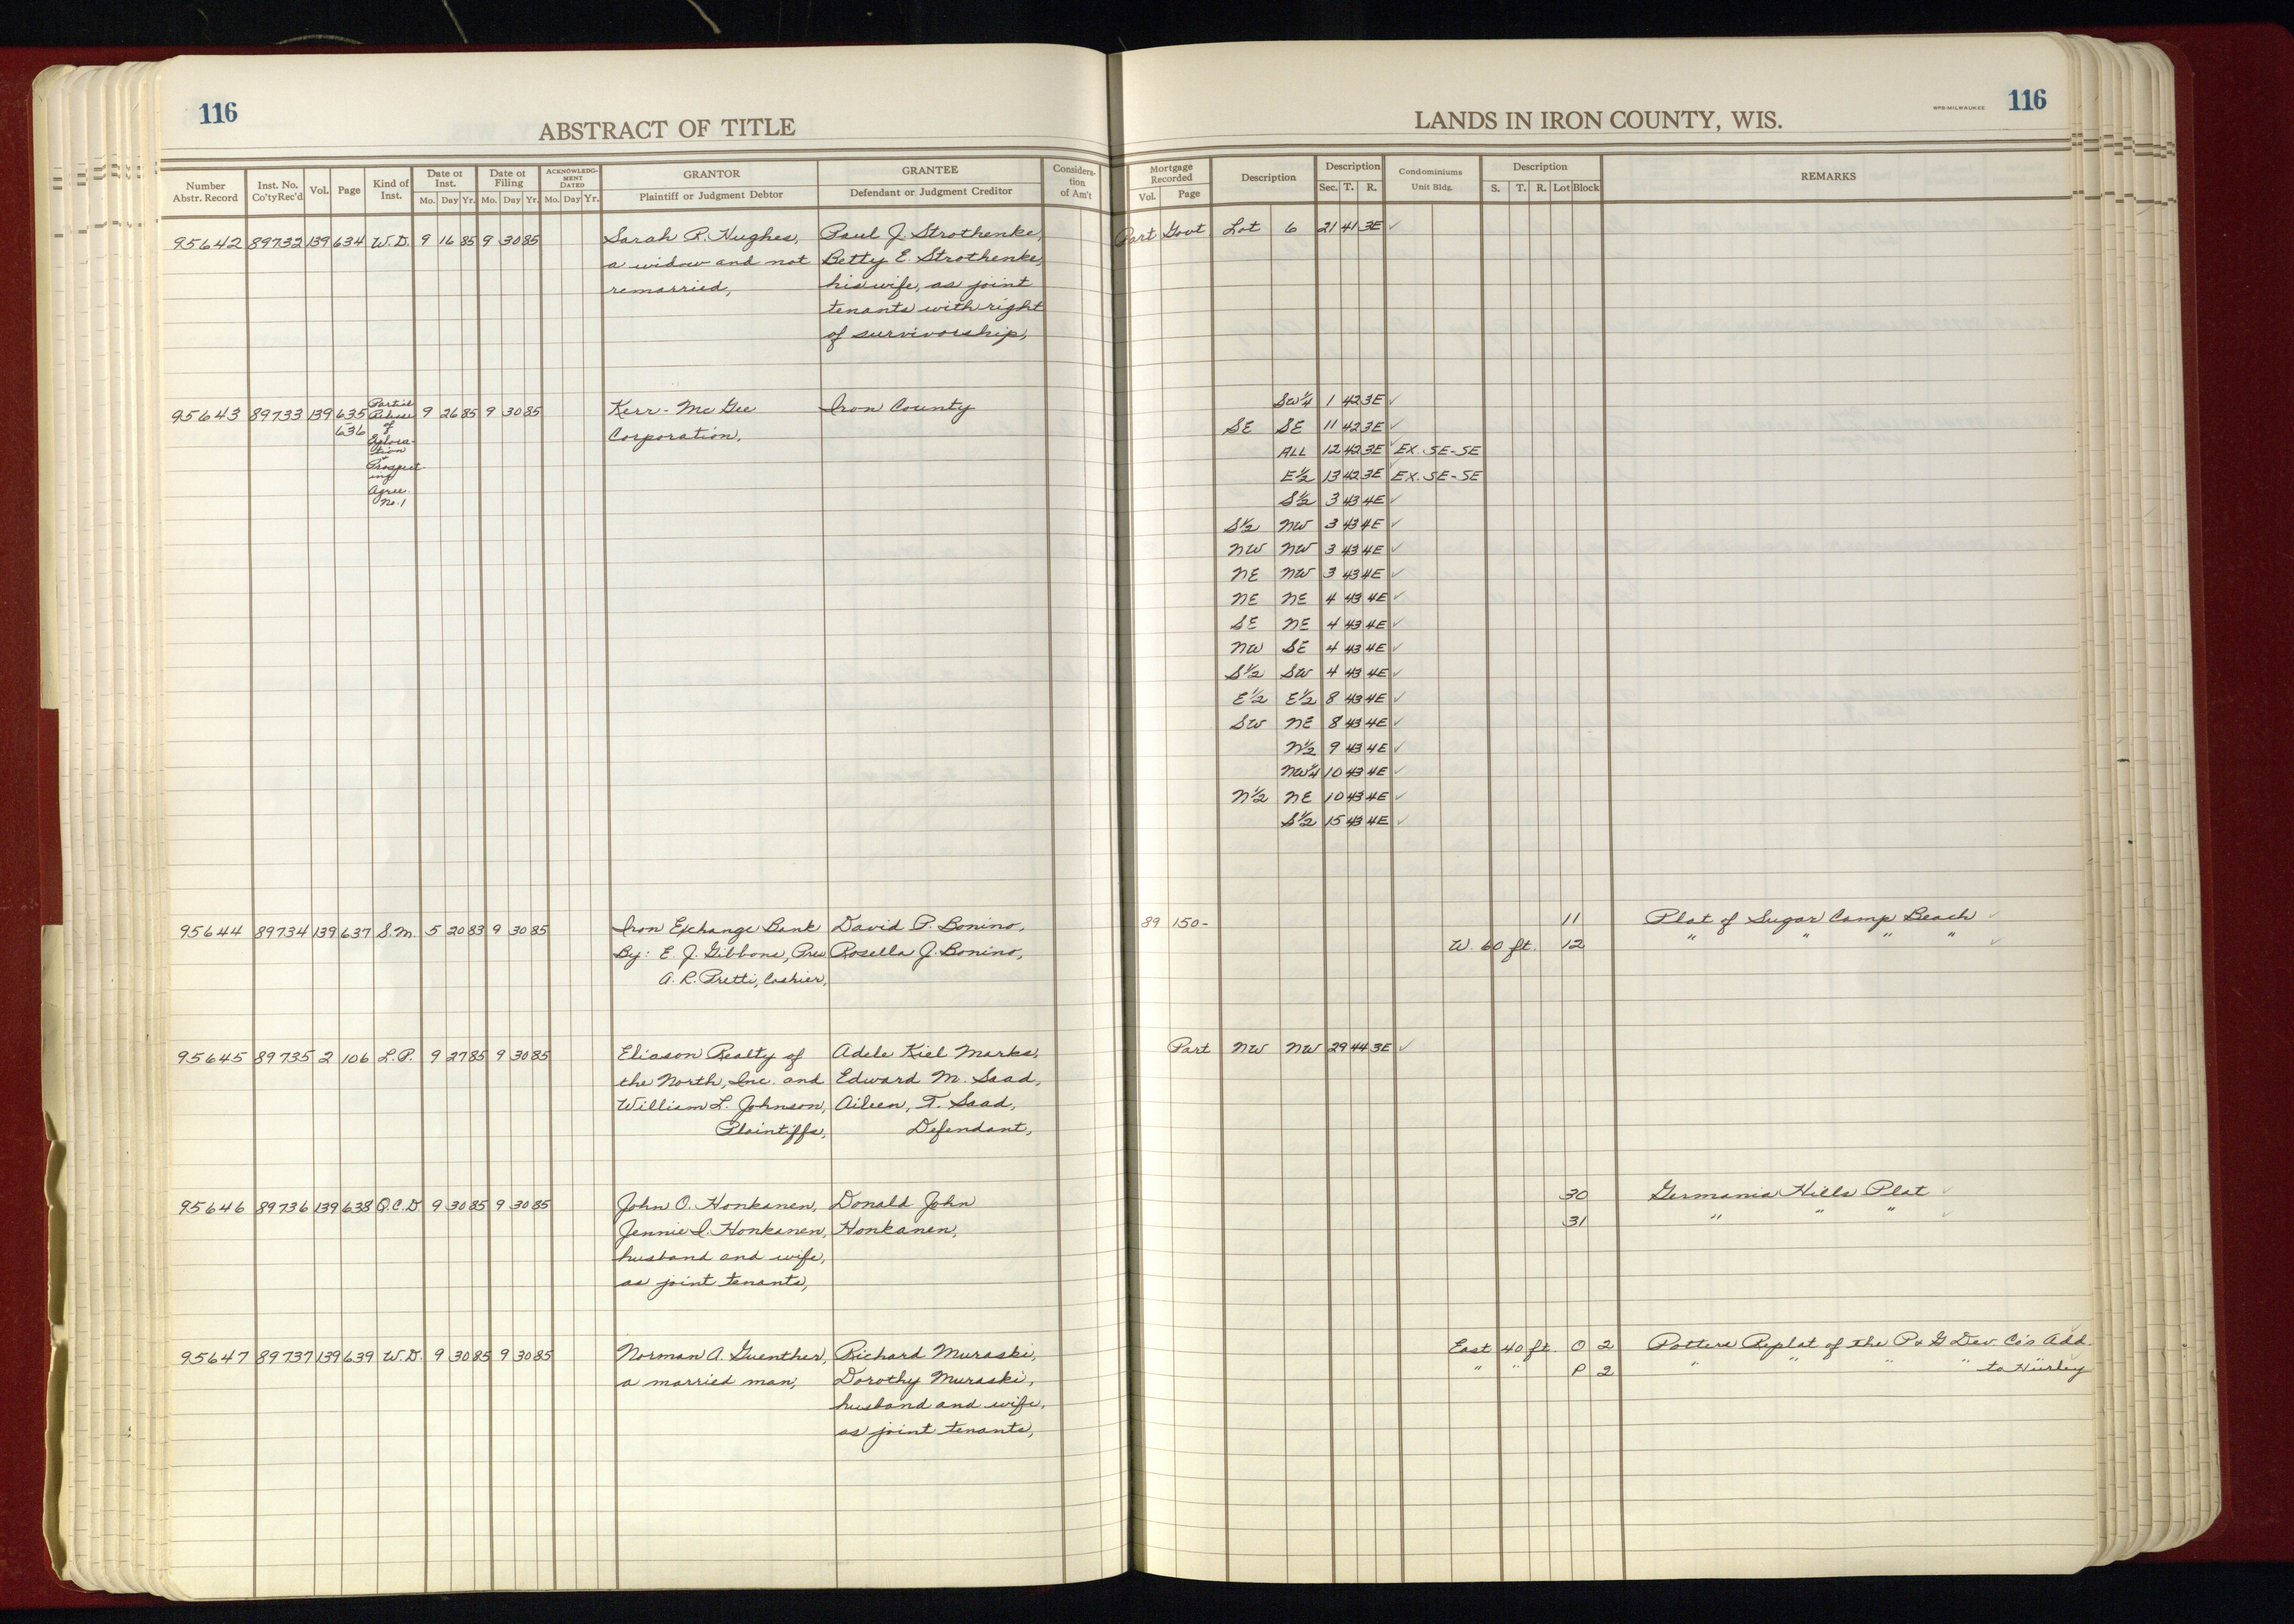 116
ABSTRACT OF TITLE
Number Abstr. Record | Inst. No. Co'ty Rec'd | Vol. | Page | Kind of Inst. | Date of Inst. Mo. Day Yr. | Date of Filing Mo. Day Yr. | ACKNOWLEDGMENT DATED Mo. Day Yr. | GRANTOR Plaintiff or Judgment Debtor | GRANTEE Defendant or Judgment Creditor | Consideration of Am't
95642 89732 139 634 W.D. 9 16 85 9 30 85 Sarah R. Hughes, Paul J. Strothenke,
a widow and not Betty E. Strothenke,
remarried, his wife, as joint
tenants with right
of survivorship,
95643 89733 139 635 Partial 9 26 85 9 30 85 Kerr-McGee Iron County
636 Release Corporation,
of
Explora-
tion
+
Prospect
ing
Agree.
No. 1
95644 89734 139 637 S.M. 5 20 83 9 30 85 Iron Exchange Bank David P. Bonino,
By: E. J. Gibbons, Pres Rosella J. Bonino,
A. R. Pretti, Cashier,
95645 89735 2 106 L.P. 9 27 85 9 30 85 Eliason Realty of Adele Kiel Marks,
the North, Inc. and Edward M. Saad,
William L. Johnson, Aileen, T. Saad,
Plaintiffs, Defendant,
95646 89736 139 638 Q.C.D 9 30 85 9 30 85 John O. Honkanen, Donald John
Jennie I. Honkanen, Honkanen,
husband and wife,
as joint tenants,
95647 89737 139 639 W.D. 9 30 85 9 30 85 Norman A. Guenther, Richard Muraski,
a married man, Dorothy Muraski,
husband and wife,
as joint tenants,
LANDS IN IRON COUNTY, WIS.
NPB-MILWAUKEE
116
Mortgage Recorded Vol. Page | Description | Description Sec. T. R. | Condominiums Unit Bldg. | Description S. T. R. Lot Block | REMARKS
Part Govt Lot 6 21 41 3E ✓
SW¼ 1 42 3E ✓
SE SE 11 42 3E ✓
ALL 12 42 3E ✓ EX. SE-SE
E½ 13 42 3E ✓ EX. SE-SE
S½ 3 43 4E ✓
S½ NW 3 43 4E ✓
NW NW 3 43 4E ✓
NE NW 3 43 4E ✓
NE NE 4 43 4E ✓
SE NE 4 43 4E ✓
NW SE 4 43 4E ✓
S½ SW 4 43 4E ✓
E½ E½ 8 43 4E ✓
SW NE 8 43 4E ✓
N½ 9 43 4E ✓
NW¼ 10 43 4E ✓
N½ NE 10 43 4E ✓
S½ 15 43 4E ✓
89 150- 11 Plat of Sugar Camp Beach ✓
W. 60 ft. 12 " " " " ✓
Part NW NW 29 44 3E ✓
30 Germania Hills Plat ✓
31 " " " ✓
East 40 ft. O 2 Potters Replat of the P & G Dev. Co's Add.
" " P 2 " " " " to Hurley